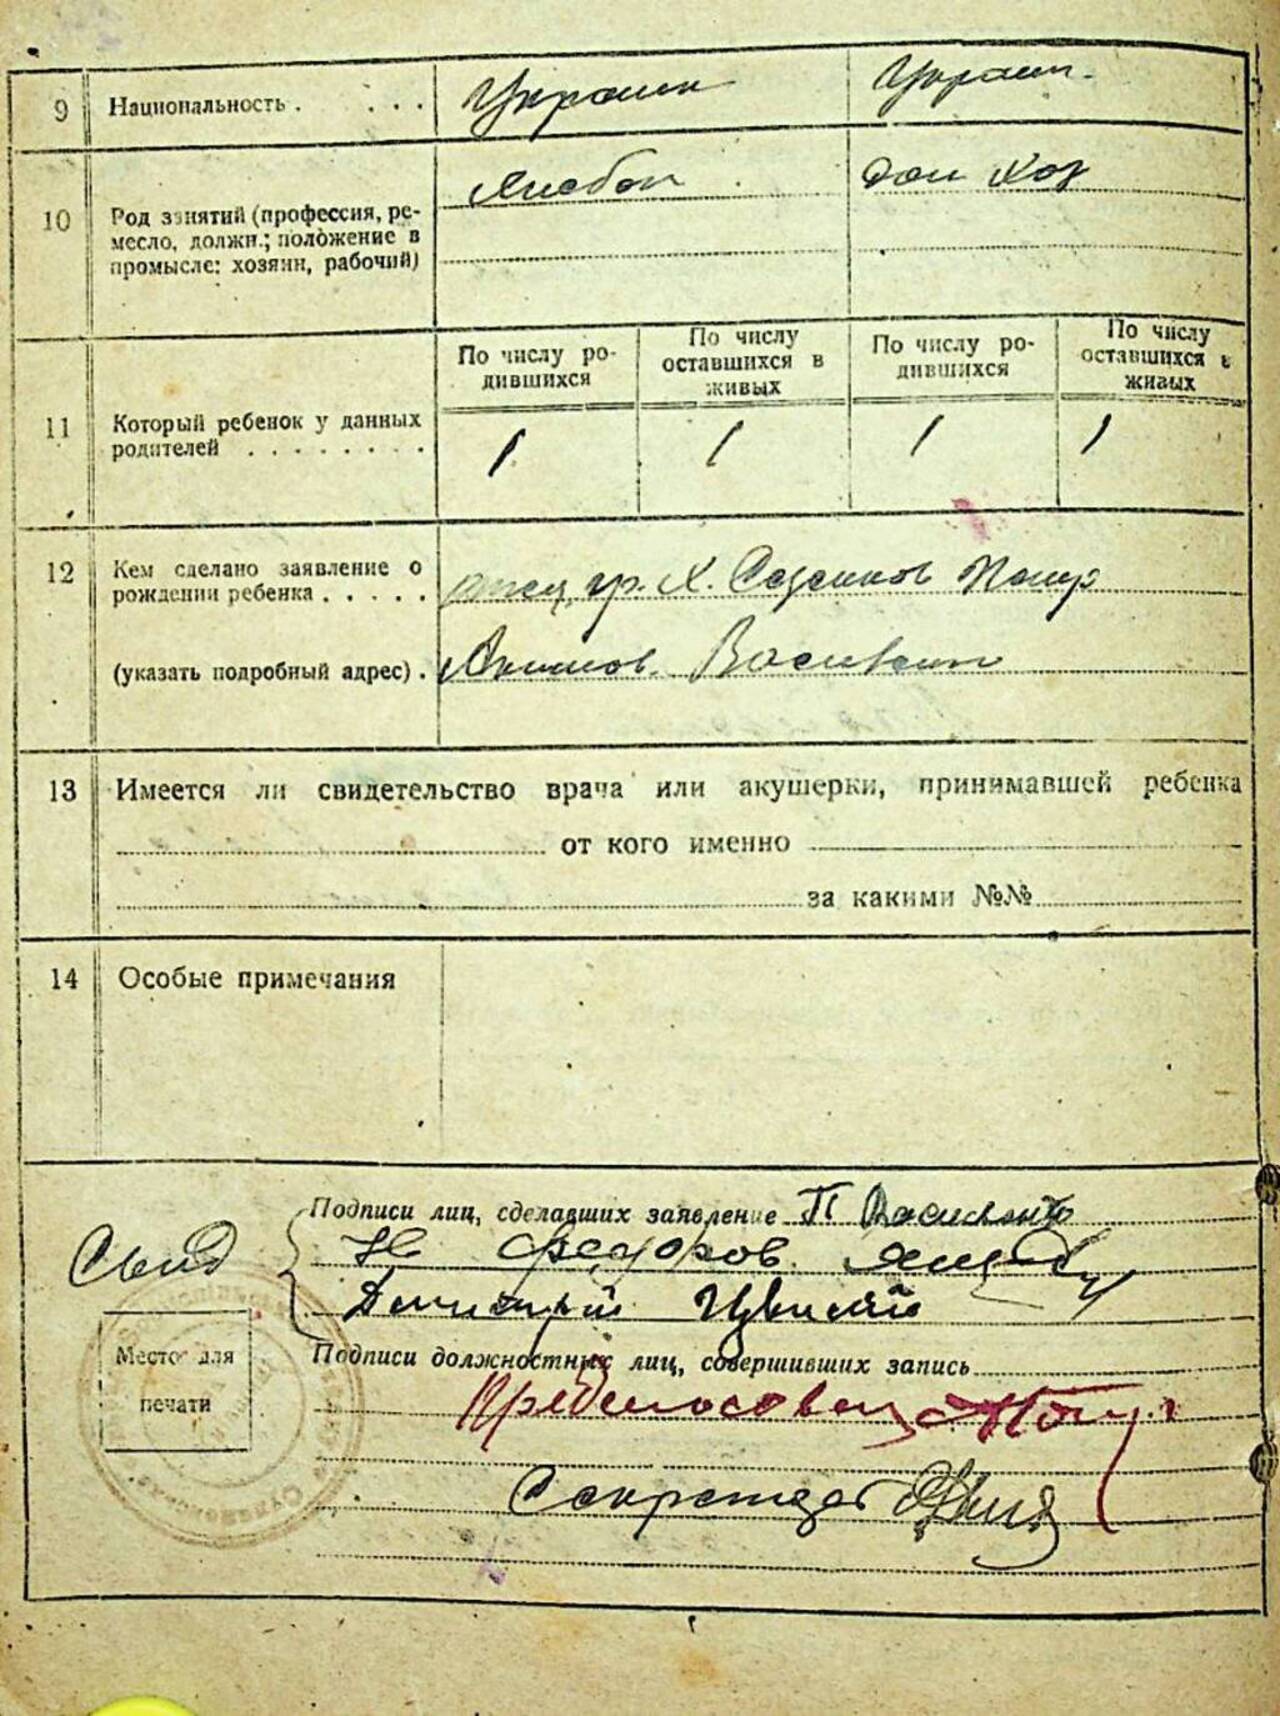 9 Национальность . . . . Украин Украин.
10 Род занятий (профессия, ре-
месло, должн.; положение в
промысле: хозяин, рабочий)
Хлебоп Дом Хоз
11 Который ребенок у данных
родителей . . . . . . . .
По числу ро-
дившихся
По числу
оставшихся в
живых
По числу ро-
дившихся
По числу
оставшихся в
живых
1 1 1 1
12 Кем сделано заявление о
рождении ребенка . . . . .
(указать подробный адрес) .
отец гр. Х. Петр
Акимов. Василенко
13 Имеется ли свидетельство врача или акушерки, принимавшей ребенка
от кого именно
за какими №№
14 Особые примечания
Подписи лиц, сделавших заявление П Василенко
Свид Федоров
Дмитрий
Место для
печати
Подписи должностных лиц, совершивших запись
Пред
Секретарь